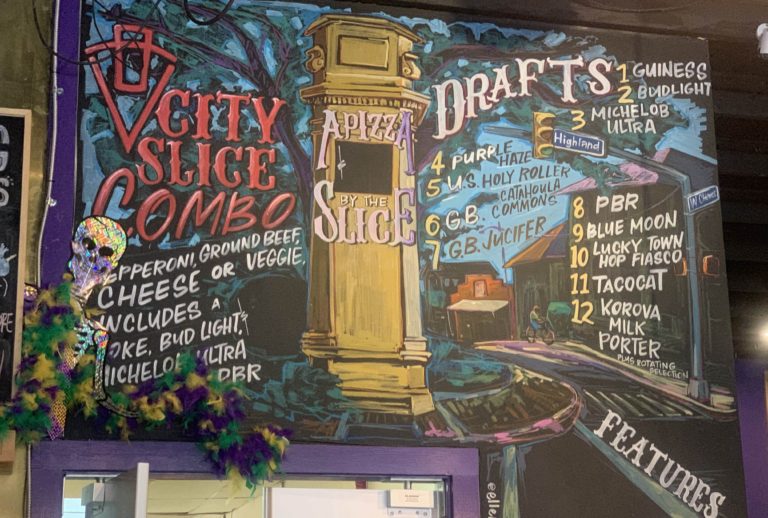 CITY
SLICE
COMBO
EPPERONI, GROUND BEEF,
CHEESE OR VEGGIE,
NCLUDES A
OKE, BUD LIGHT,
MICHELOB ULTRA
PBR
A PIZZA
BY THE
SLICE
DRAFTS
1 GUINESS
2 BUDLIGHT
3 MICHELOB
ULTRA
4 PURPLE
HAZE
5 U.S. HOLY ROLLER
6 G.B. CATAHOULA
COMMONS
7 G.B. JUCIFER
Highland
8 PBR
9 BLUE MOON
10 LUCKY TOWN
HOP FIASCO
11 TACOCAT
12 KOROVA
MILK
PORTER
PLUS ROTATING
SELECTION
FEATURES